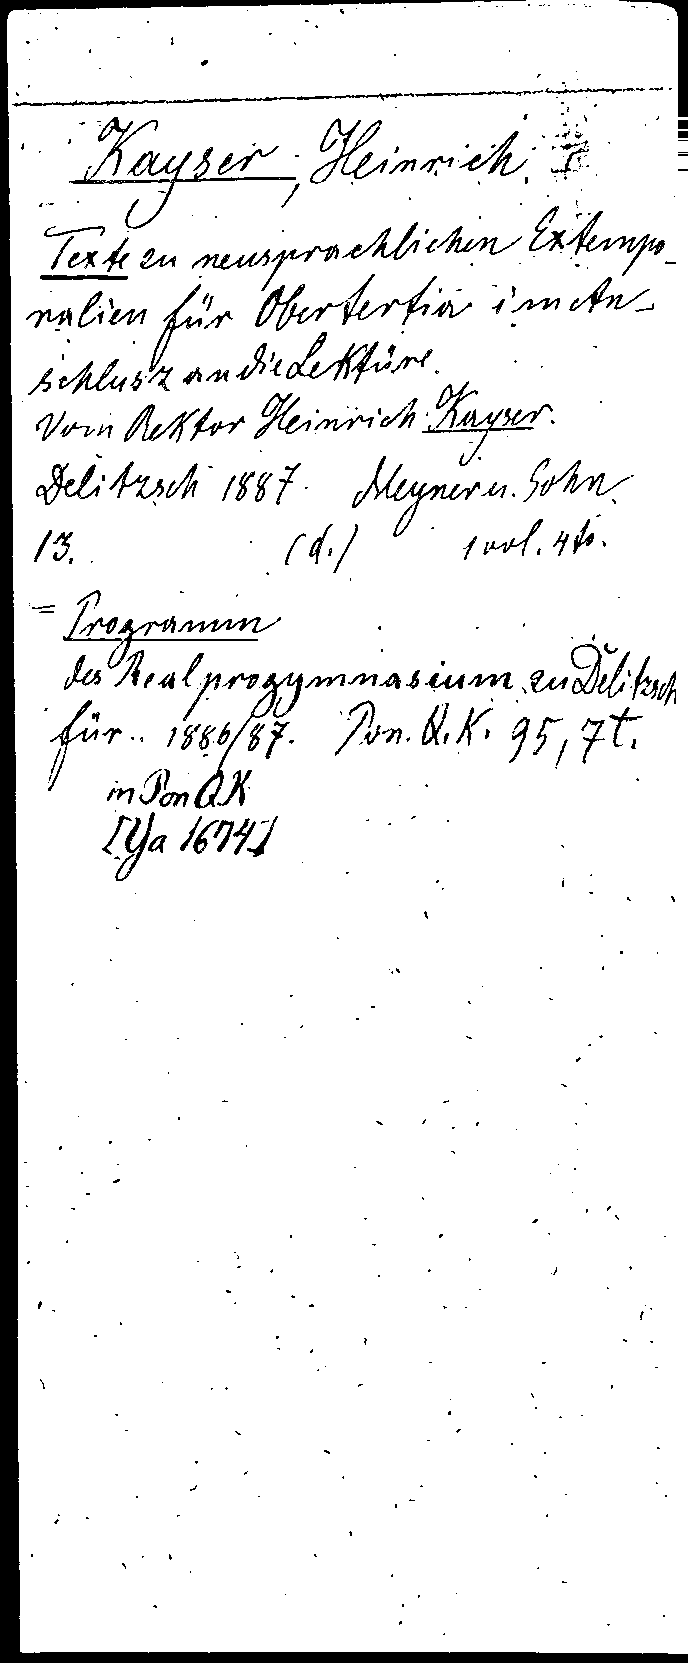 Kayser, Heinrich.
Texte zu neusprachlichen Extempo-
ralien für Obertertia im An-
schlusz an die Lektüre.
Vom Rektor Heinrich Kayser.
Delitzsch 1887. Meyner u. Sohn.
13. (d.) 1 vol. 4to.
= Programm
des Realprogymnasium zu Delitzsch
für.. 1886/87. Pon. Q.K. 95, 7t.
in Pon QK
[Ya 1674]